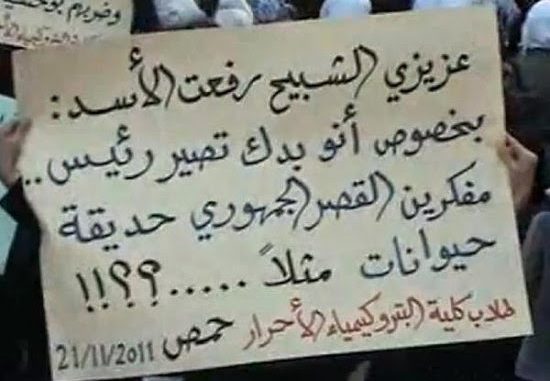 وضربهم
عزيزي الشبيح رفعت الأسد :
بخصوص أنو بدك تصير رئيس ..
مفكرين القصر الجمهوري حديقة
حيوانات مثلاً .....؟؟!!
طلاب كلية البتروكيمياء الأحرار حمص 21/11/2011